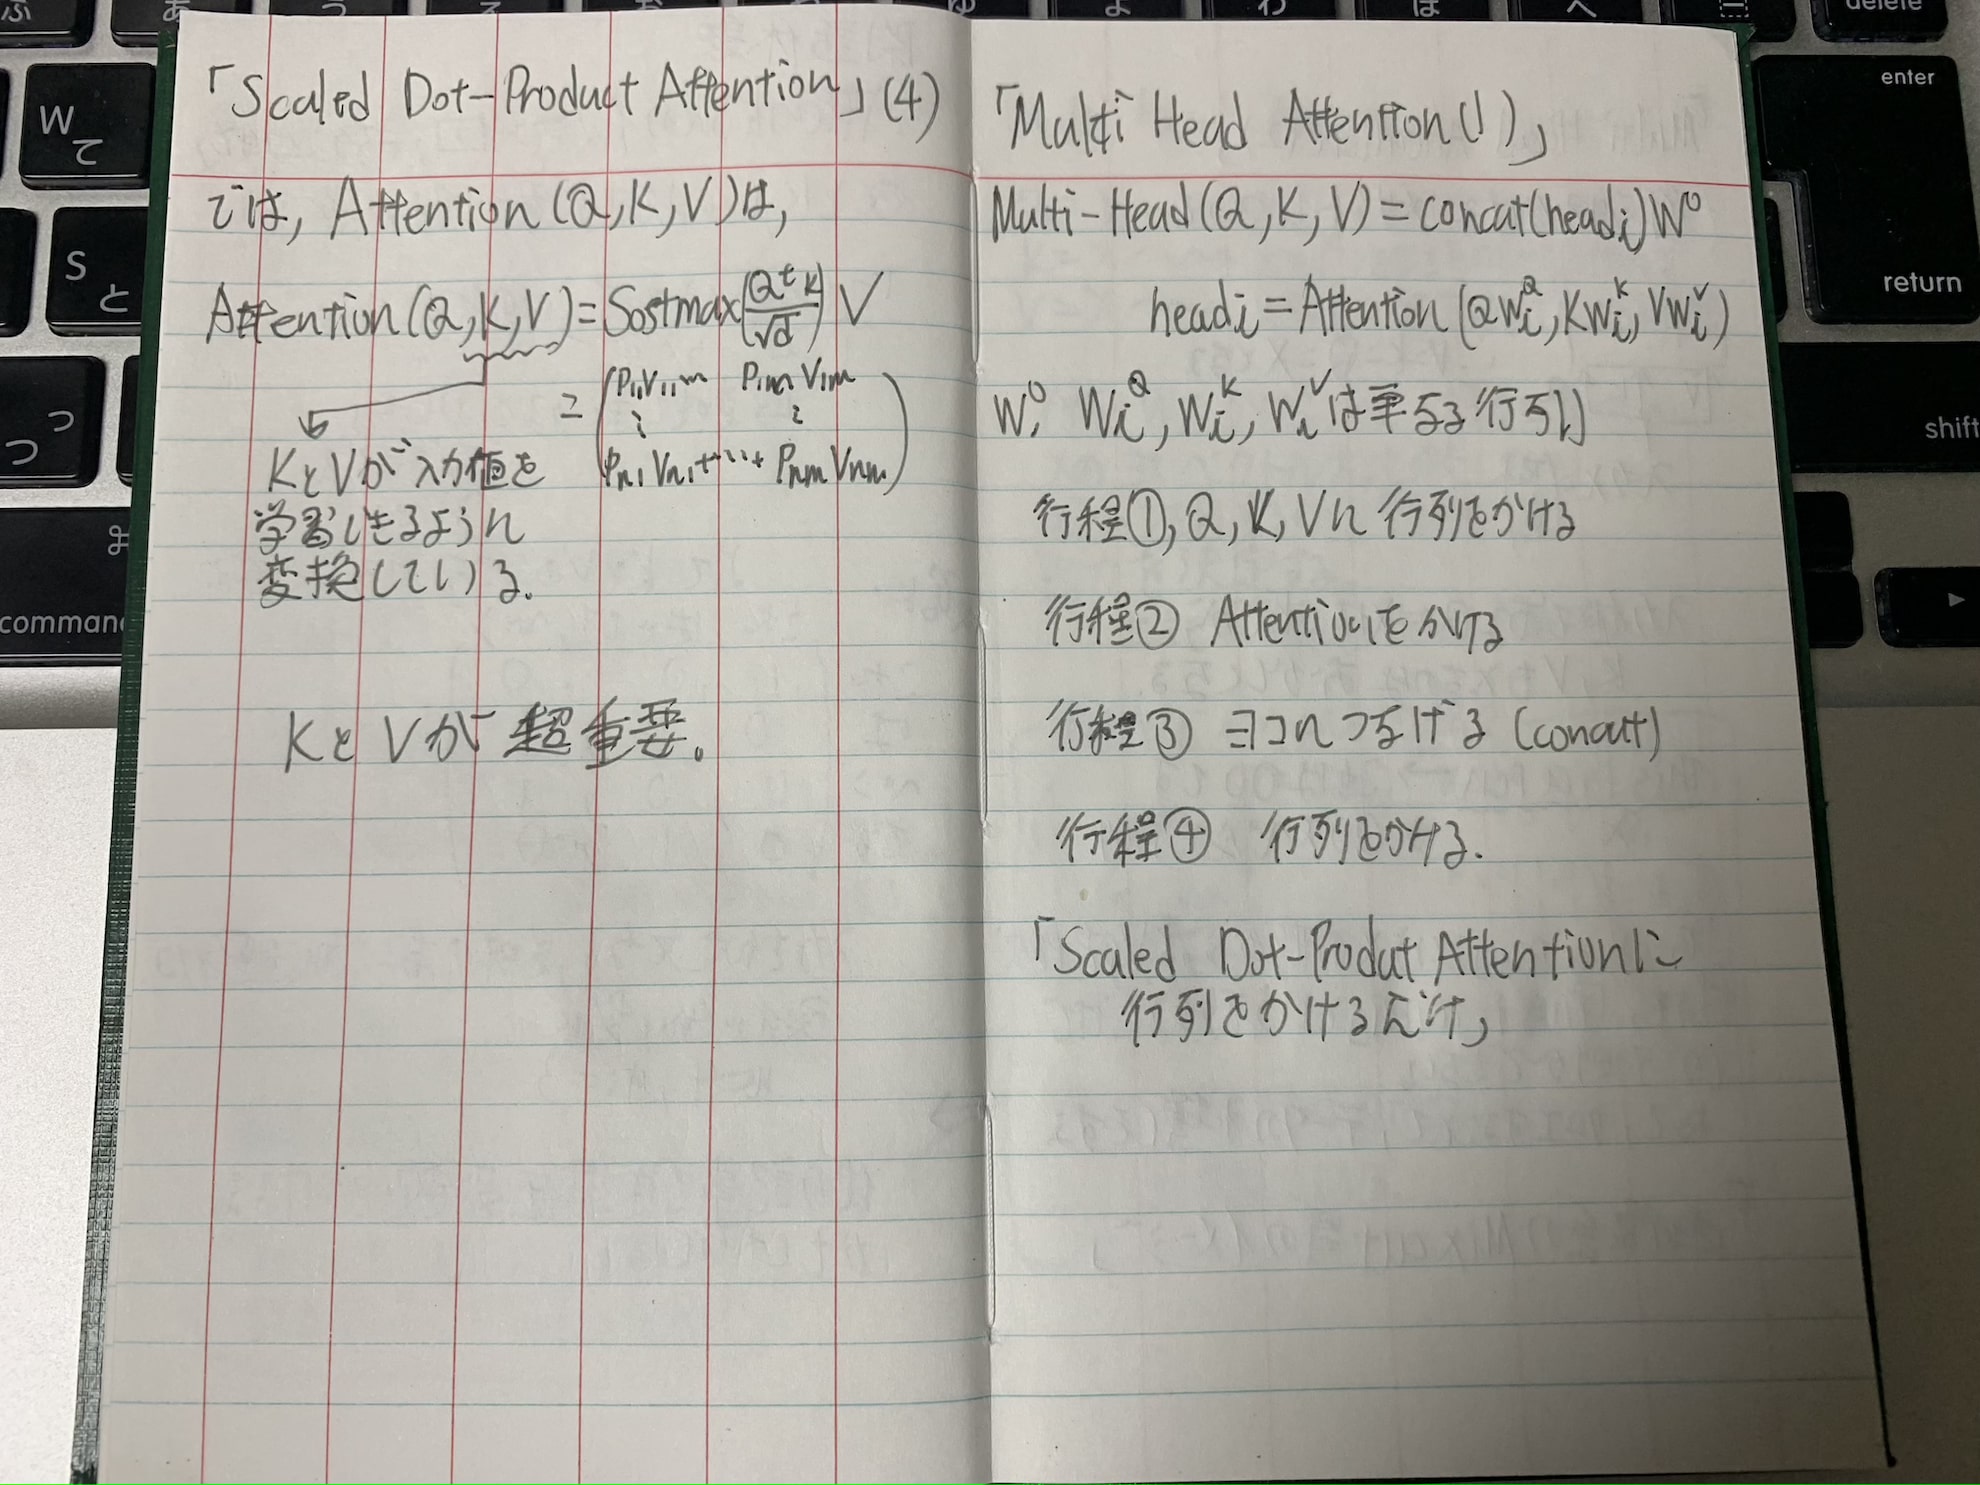 「Scaled Dot-Product Attention」(4)
では, Attention (Q,K,V)は,
Attention(Q,K,V)=Sostmax(Q^t K/√d)V
=(P11V11m P1mV1m
⋮ ⋮
Pn1Vn1+…+PnmVnm)
KとVが入力値を
学習できるように
変換している.
KとVが超重要。
「Multi Head Attention(1)」
Multi-Head(Q,K,V)=concat(headi)W^O
headi=Attention(QWi^Q,KWi^K,VWi^V)
W^O, Wi^Q, Wi^K, Wi^Vは単なる行列
行程①, Q, K, Vに行列をかける
行程② Attentionをかける
行程③ ヨコにつなげる (concat)
行程④ 行列をかける.
「Scaled Dot-Produt Attentionに
行列をかけるだけ」
W
て
S
と
つ
っ
⌘
command
delete
enter
return
shift